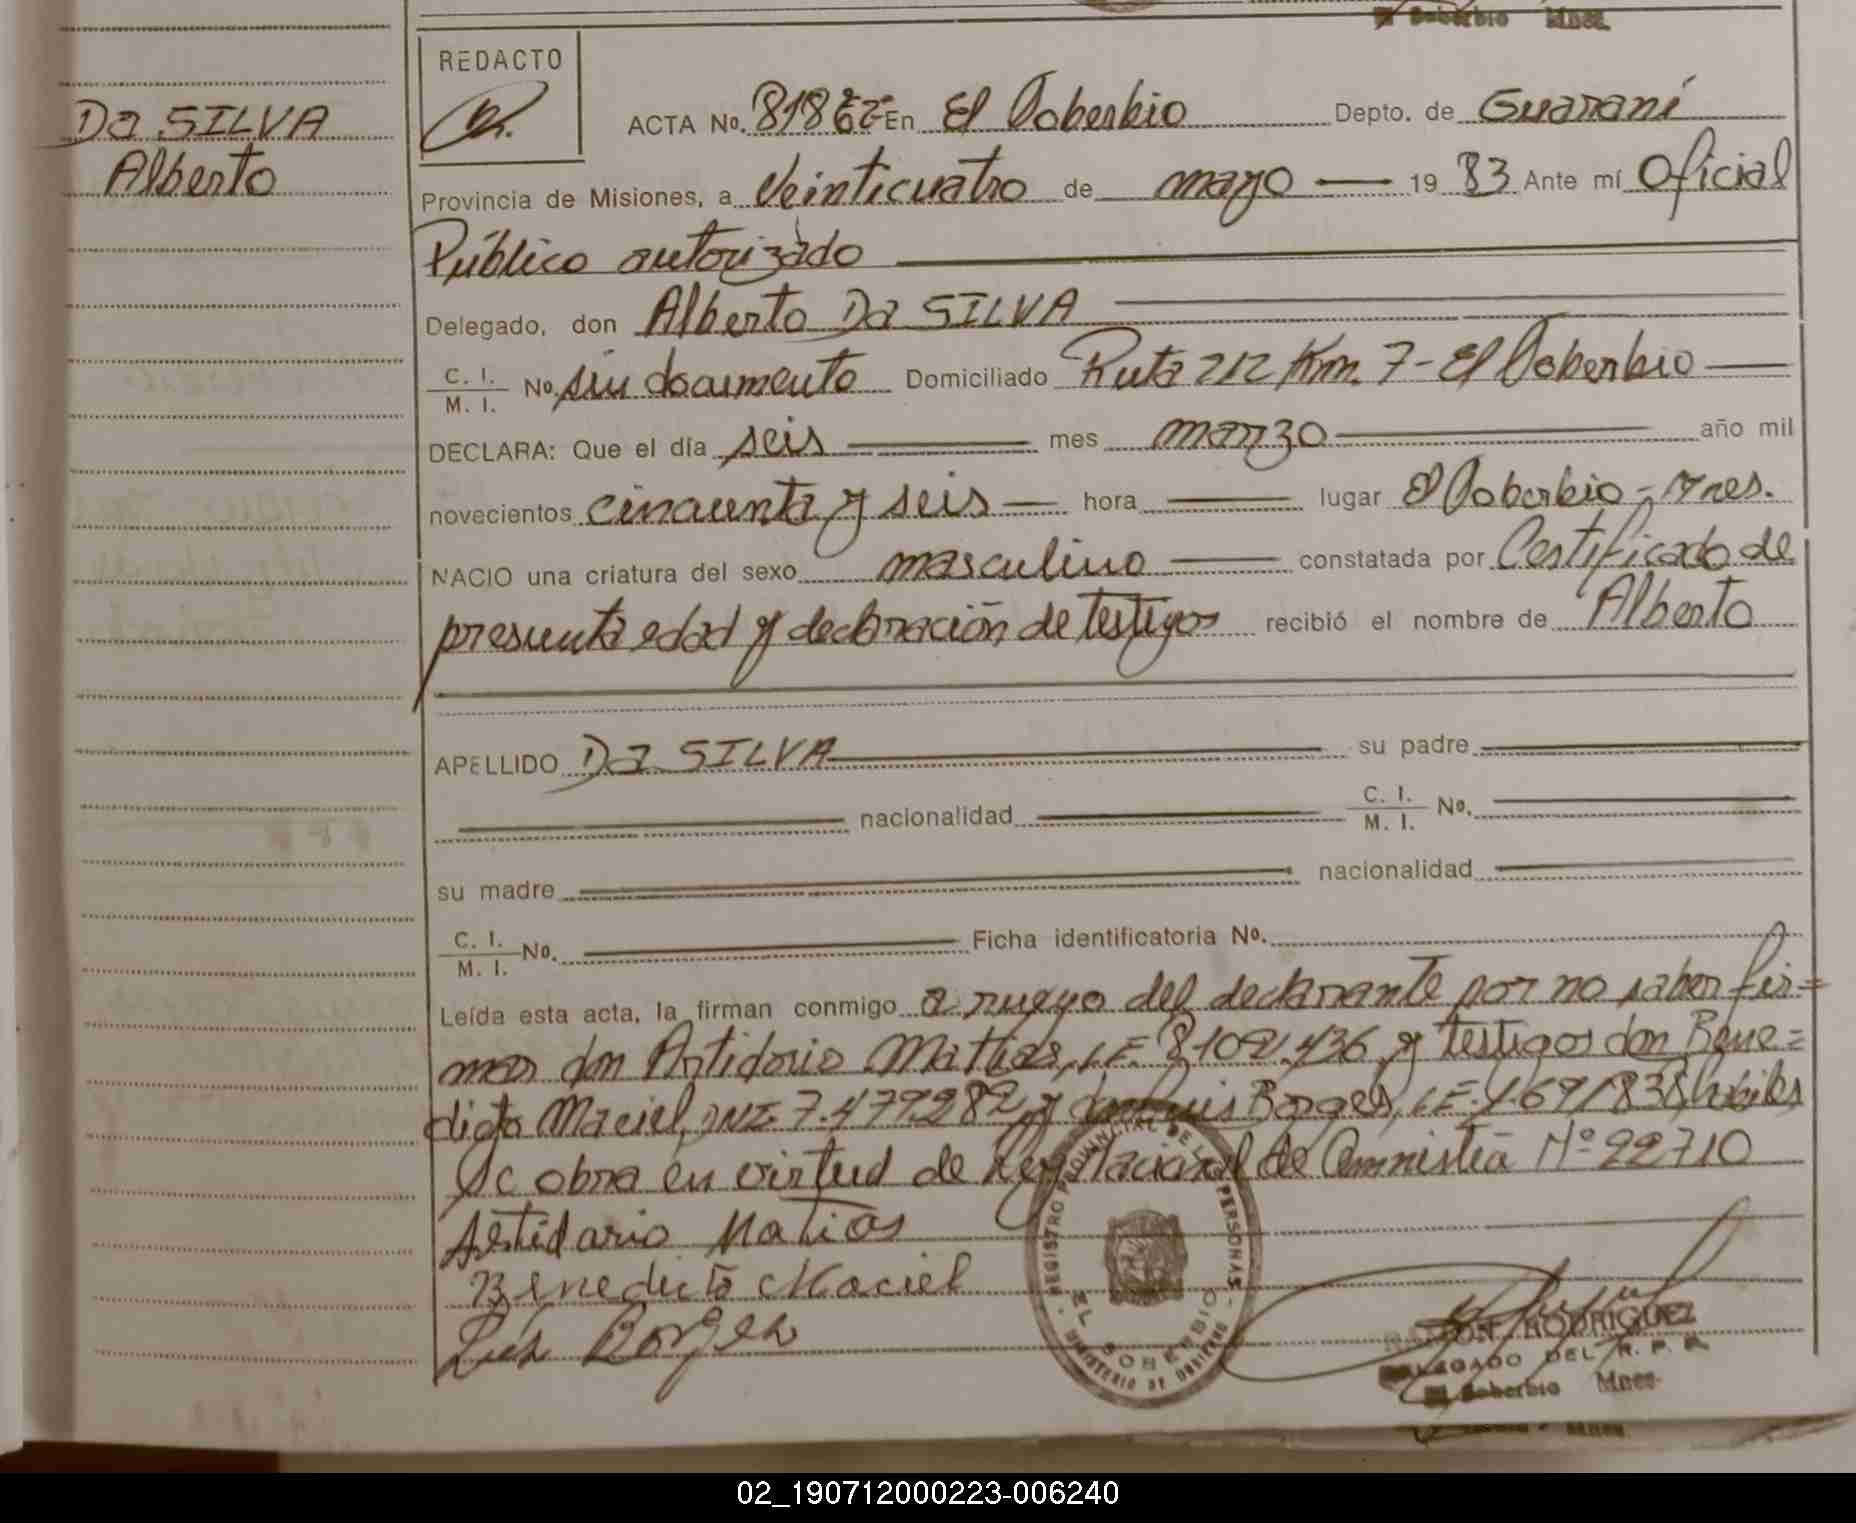 Soberbio Mnes.
REDACTO
Da SILVA
Alberto
ACTA No. 818 En El Soberbio Depto. de Guaraní
Provincia de Misiones, a veinticuatro de mayo 19 83 Ante mí Oficial
Público autorizado
Delegado, don Alberto Da SILVA
C. I.
M. I. No. sin documento Domiciliado Ruta 212 Km. 7 - El Soberbio
DECLARA: Que el día seis mes marzo año mil
novecientos cincuenta y seis hora lugar El Soberbio - Mnes.
NACIO una criatura del sexo masculino constatada por Certificado de
presunta edad y declaración de testigos recibió el nombre de Alberto
APELLIDO Da SILVA su padre
nacionalidad C. I.
M. I. No.
su madre nacionalidad
C. I.
M. I. No. Ficha identificatoria No.
Leída esta acta, la firman conmigo a ruego del declarante por no saber fir=
mar don Matias, y testigos don Bene=
dicto Maciel, y don Luis Borges, hábiles
Se obra en virtud de Ley Nacional de Amnistia Nº 22710
Matias
Benedicto Maciel
Luis Borges
REGISTRO PROVINCIAL DE LAS PERSONAS
EL SOBERBIO
MINISTERIO DE GOBIERNO
RAMON RODRIGUEZ
DELEGADO DEL R. P. P.
El Soberbio Mnes.
02_190712000223-006240